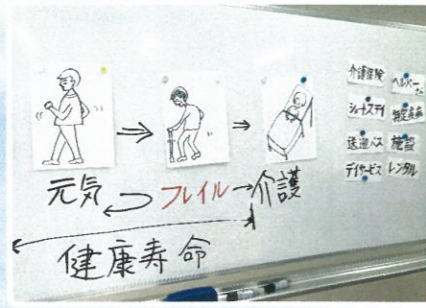 元気 フレイル 介護
健康寿命
介護保険 ヘルパー
ショートステイ
送迎バス 施設
デイサービス レンタル